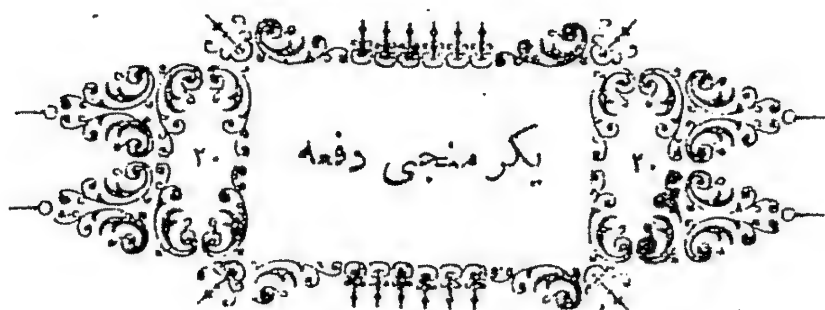 ٢٠ يكرمنجى دفعه ٢٠